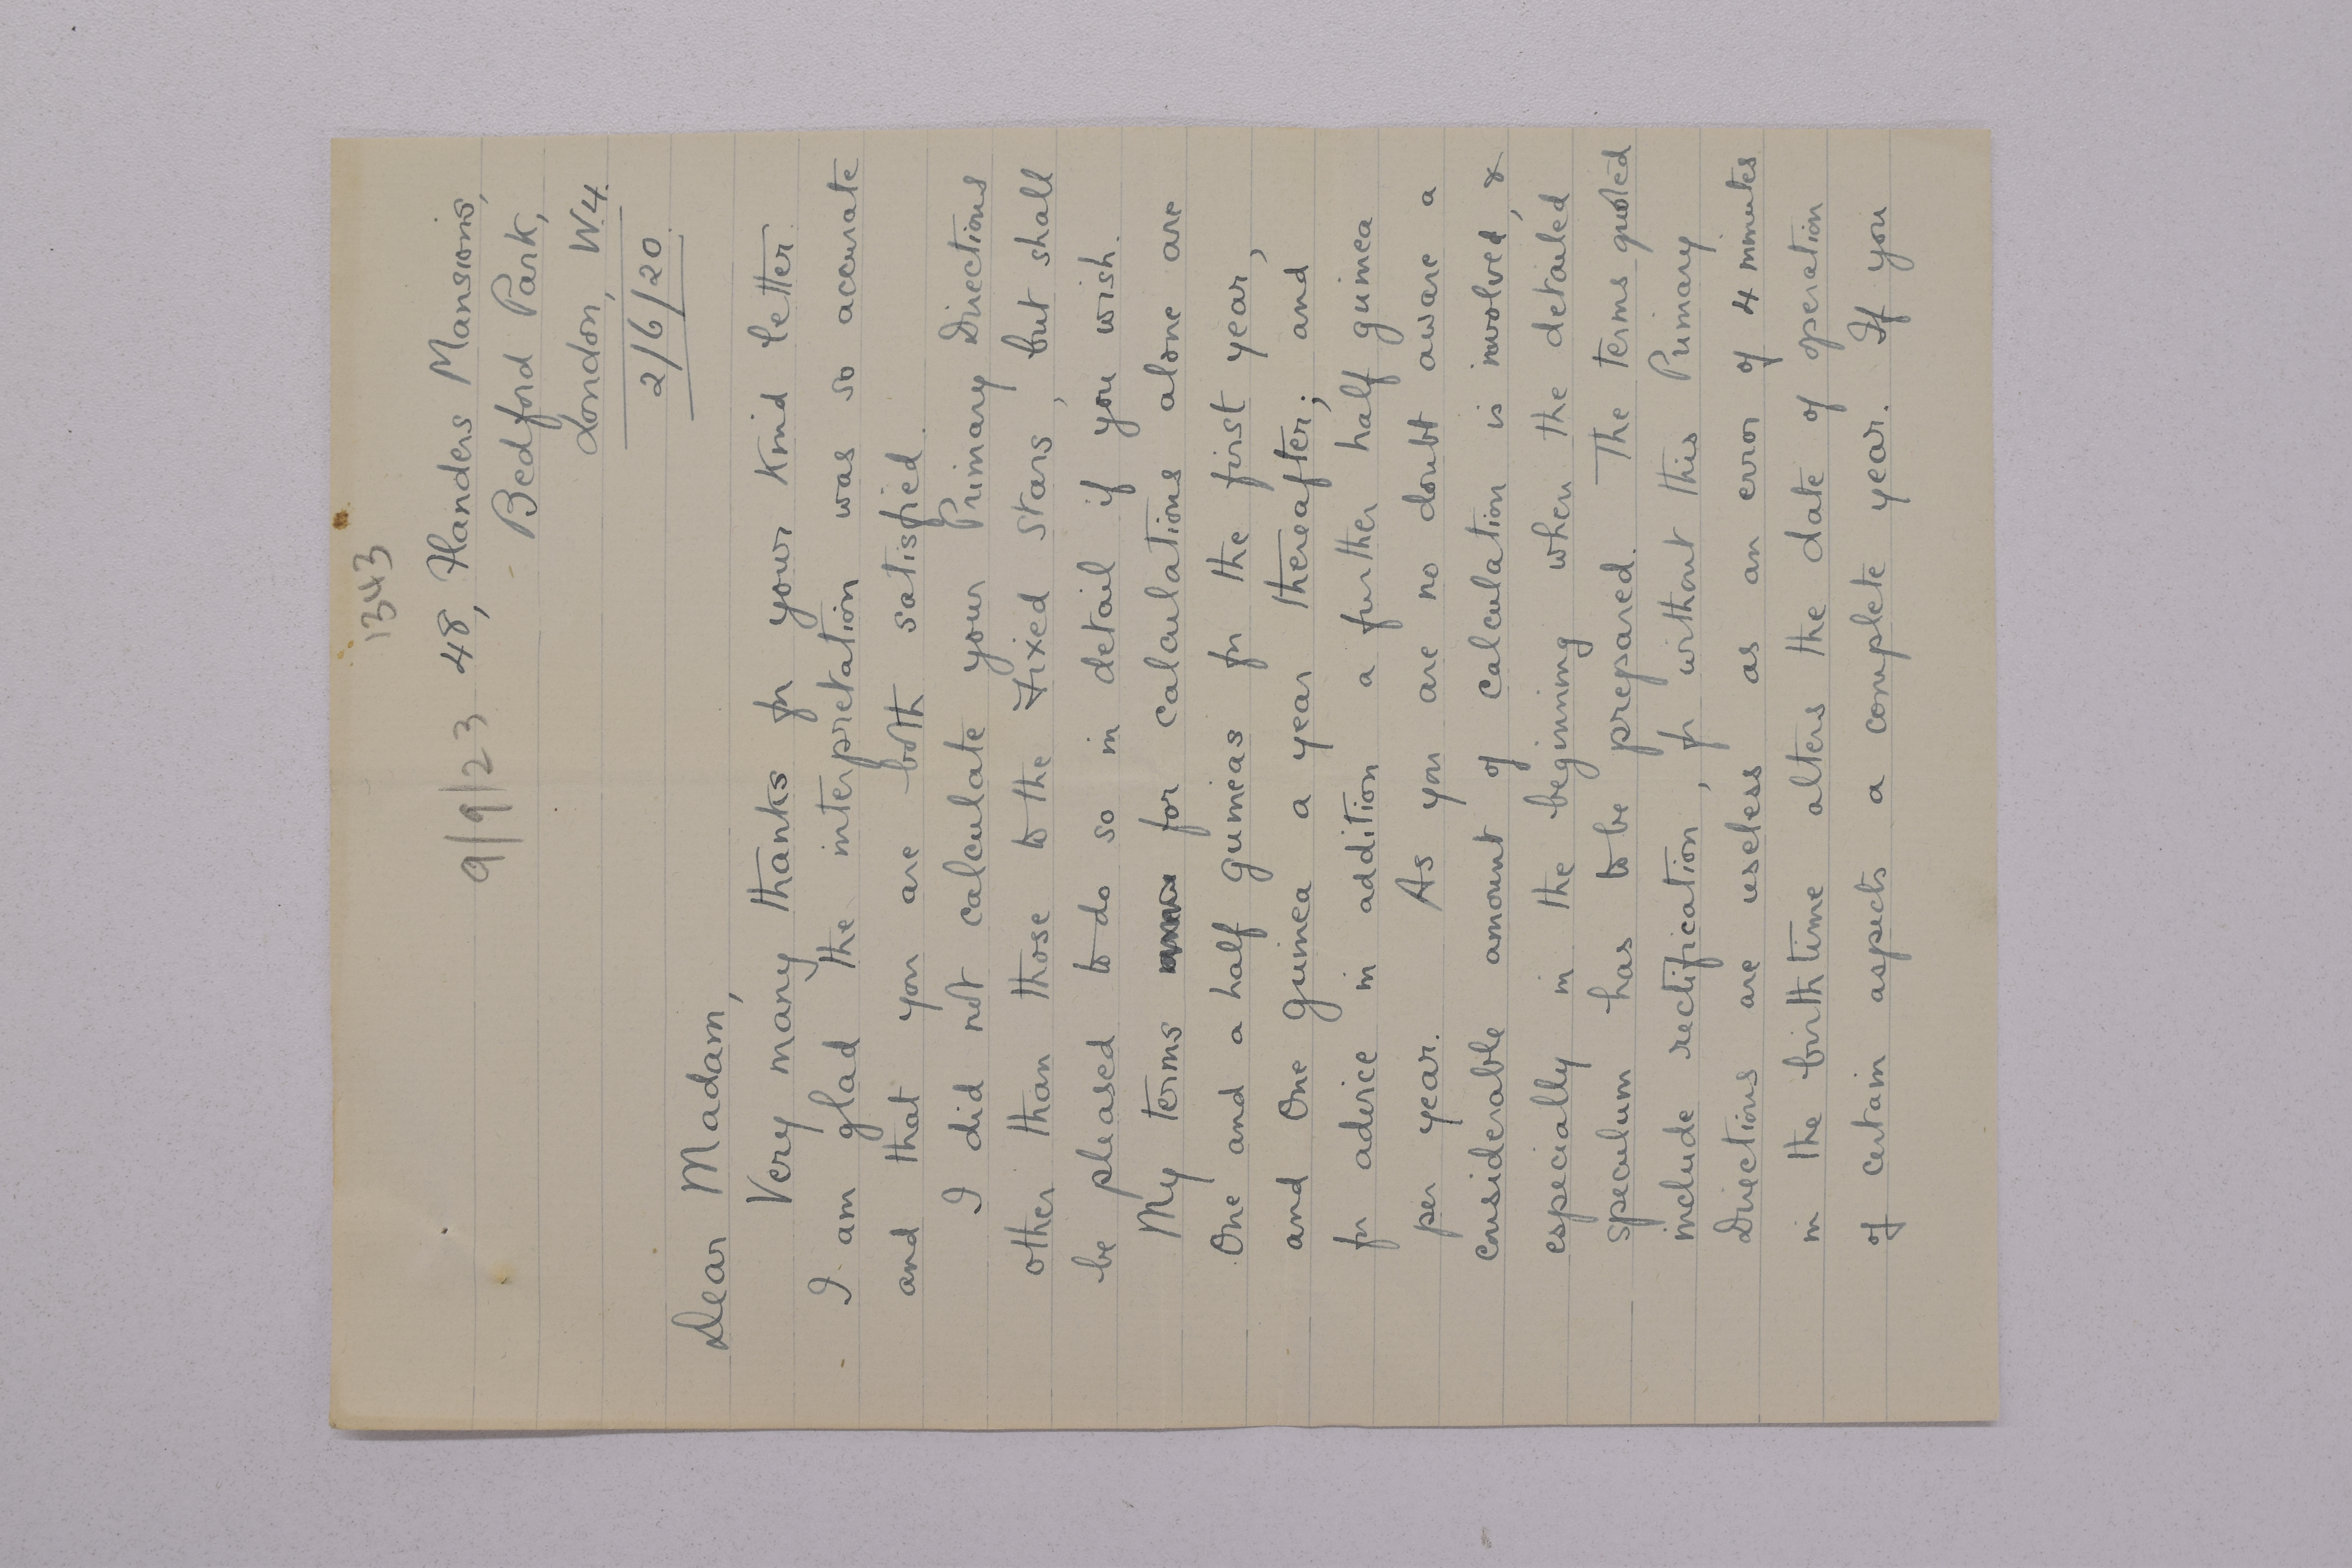 1343
9/9/23
48, Flanders Mansions,
Bedford Park,
London, W.4.
2/6/20.
Dear Madam,
Very many thanks for your kind letter.
I am glad the interpretation was so accurate
and that you are both satisfied.
I did not calculate your Primary Directions
other than those to the Fixed Stars, but shall
be pleased to do so in detail if you wish.
My terms for calculations alone are
One and a half guineas for the first year,
and One Guinea a year thereafter; and
for advice in addition a further half guinea
per year. As you are no doubt aware a
considerable amount of calculation is involved, &
especially in the beginning when the detailed
speculum has to be prepared. The terms quoted
include rectification, for without this Primary
Directions are useless as an error of 4 minutes
in the birthtime alters the date of operation
of certain aspects a complete year. If you